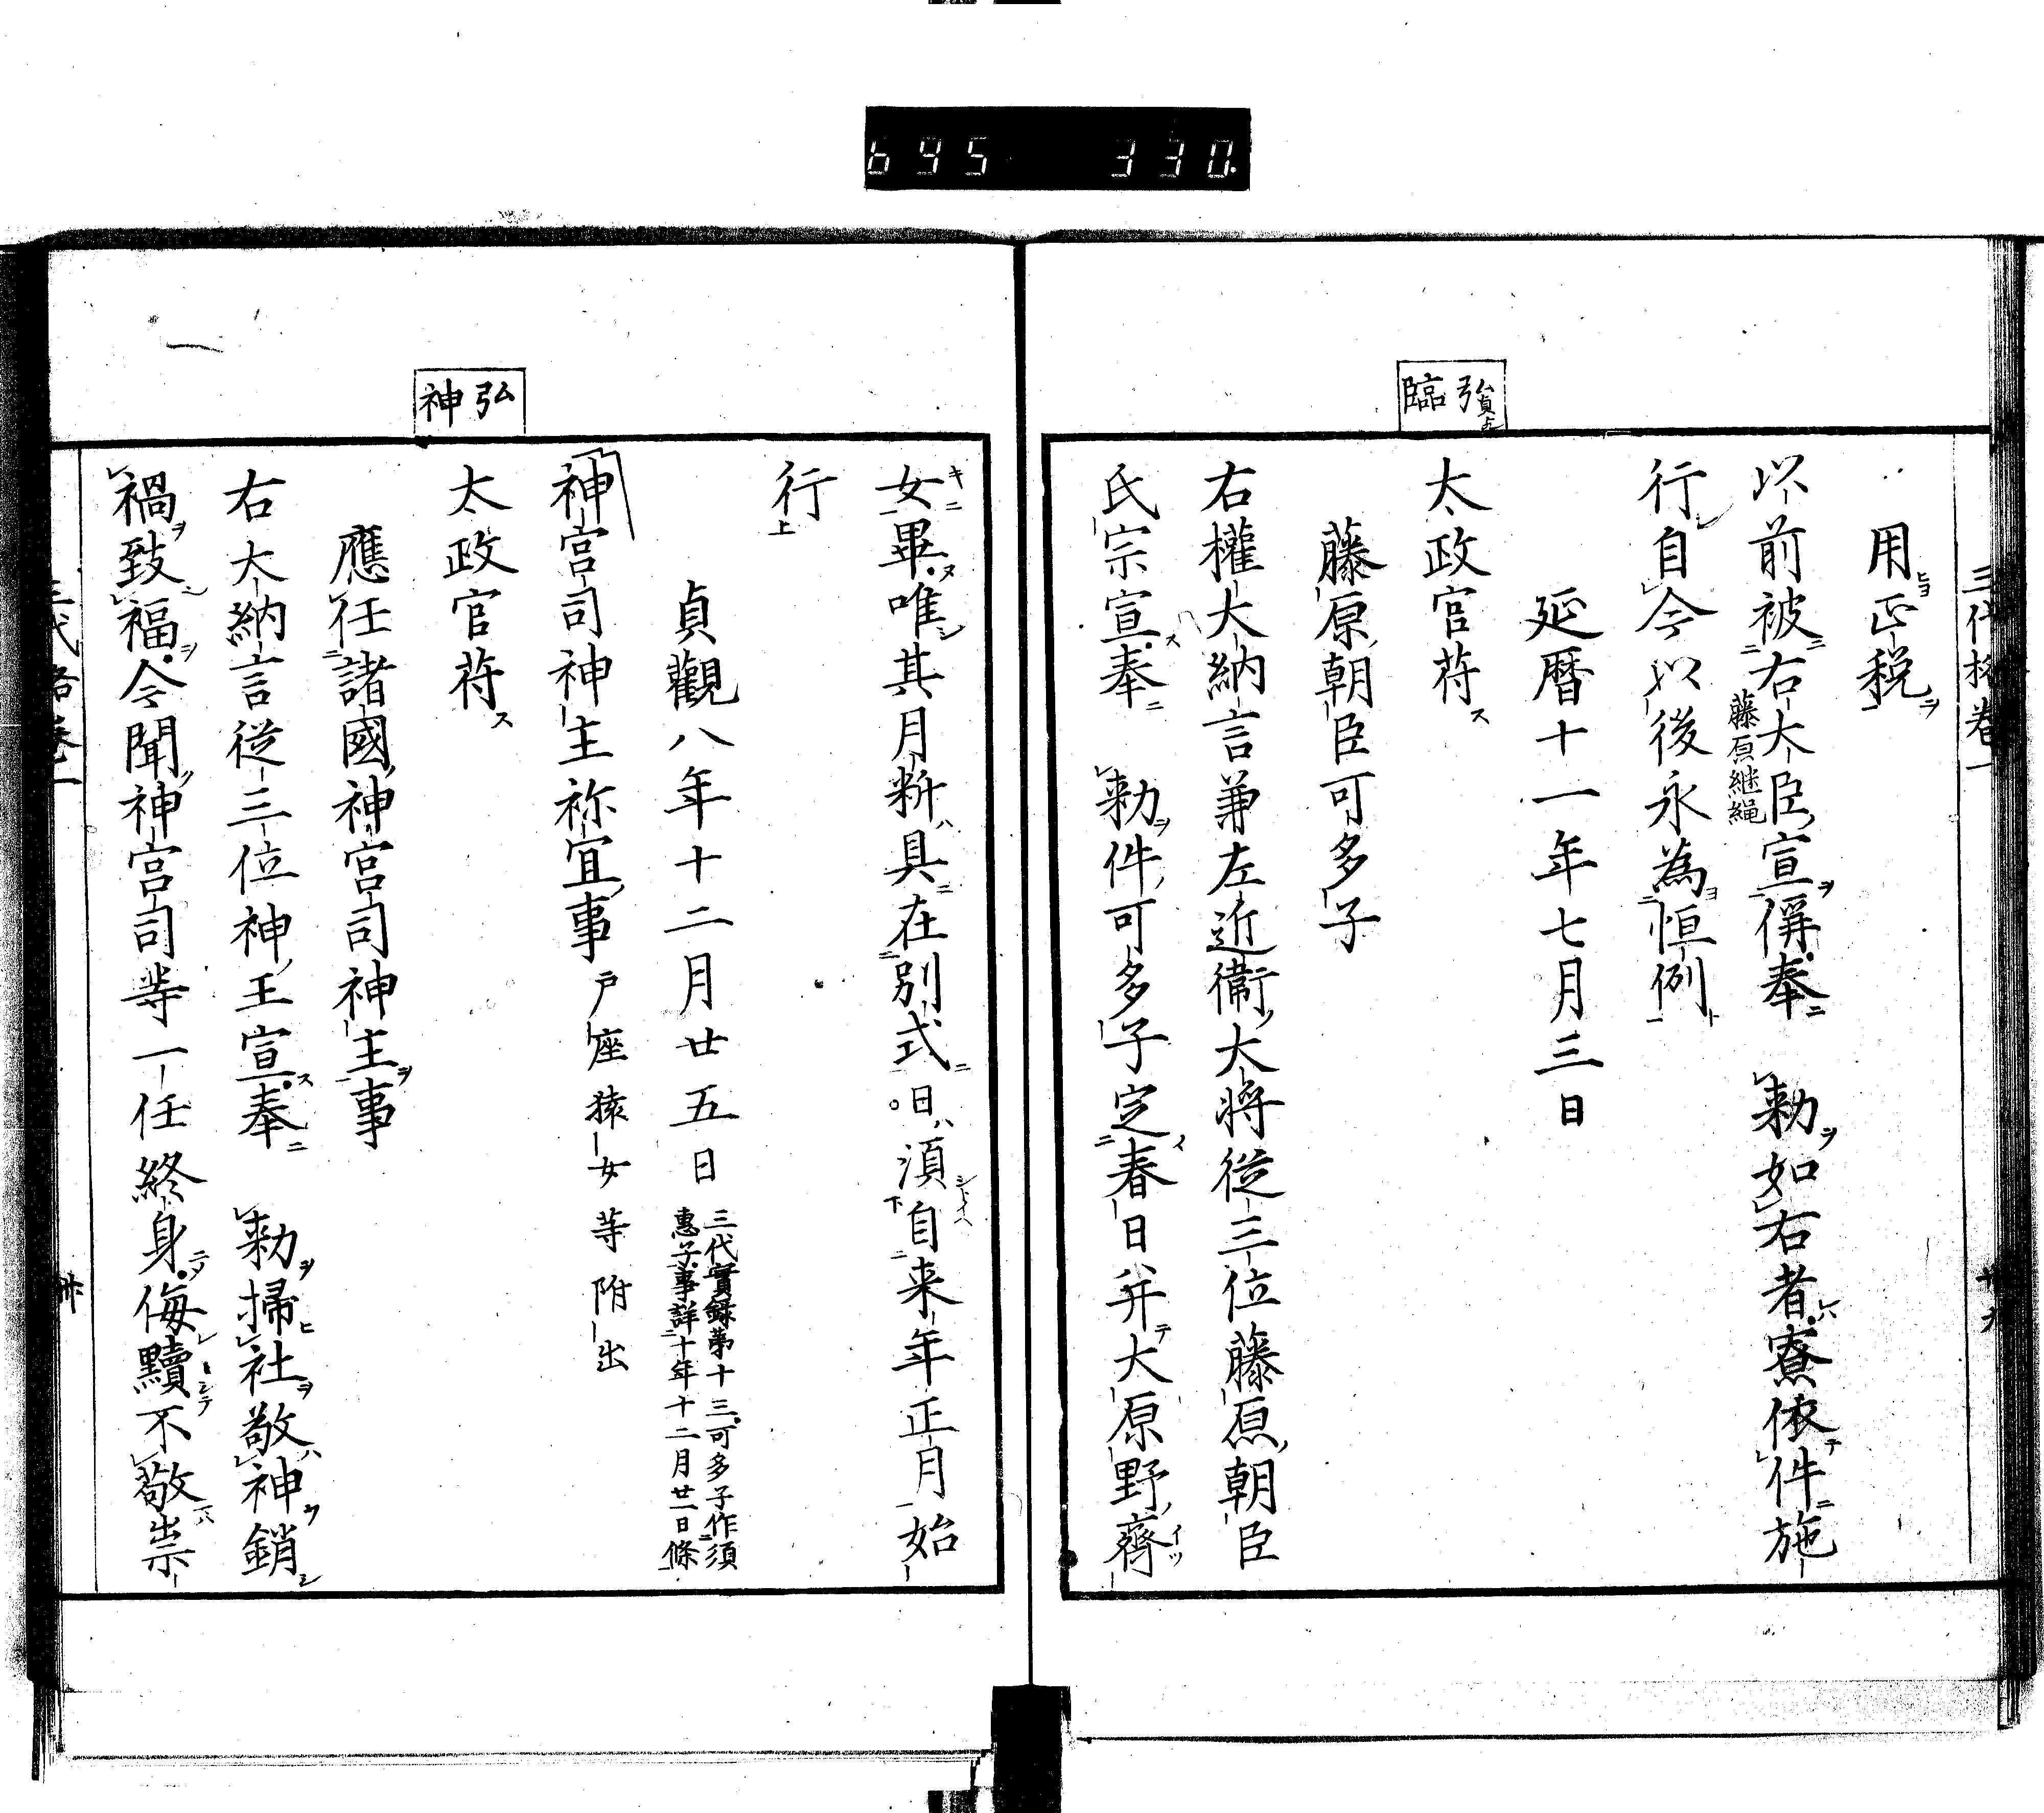 695 330
三代格卷一
用正税
以前被右大臣宣偁奉 勅如右者寮依件施
藤原継縄
行自今以後永為恒例
延暦十一年七月三日
弘貞
臨
太政官苻
藤原朝臣可多子
右權大納言兼左近衛大将従三位藤原朝臣
氏宗宣奉 勅件可多子定春日并大原野齋
女畢唯其月新具在別式日須自来年正月始
行
貞觀八年十二月廿五日
三代實録第十三可多子作須
惠子事詳十年十二月廿一日條
神宮司神主祢宜事 戸座猿女等附出
弘神
太政官苻
應任諸國神宮司神主事
右大納言従三位神王宣奉 勅掃社敬神銷
禍致福今聞神宮司等一任終身侮黷不敬祟
三代格卷一
卅